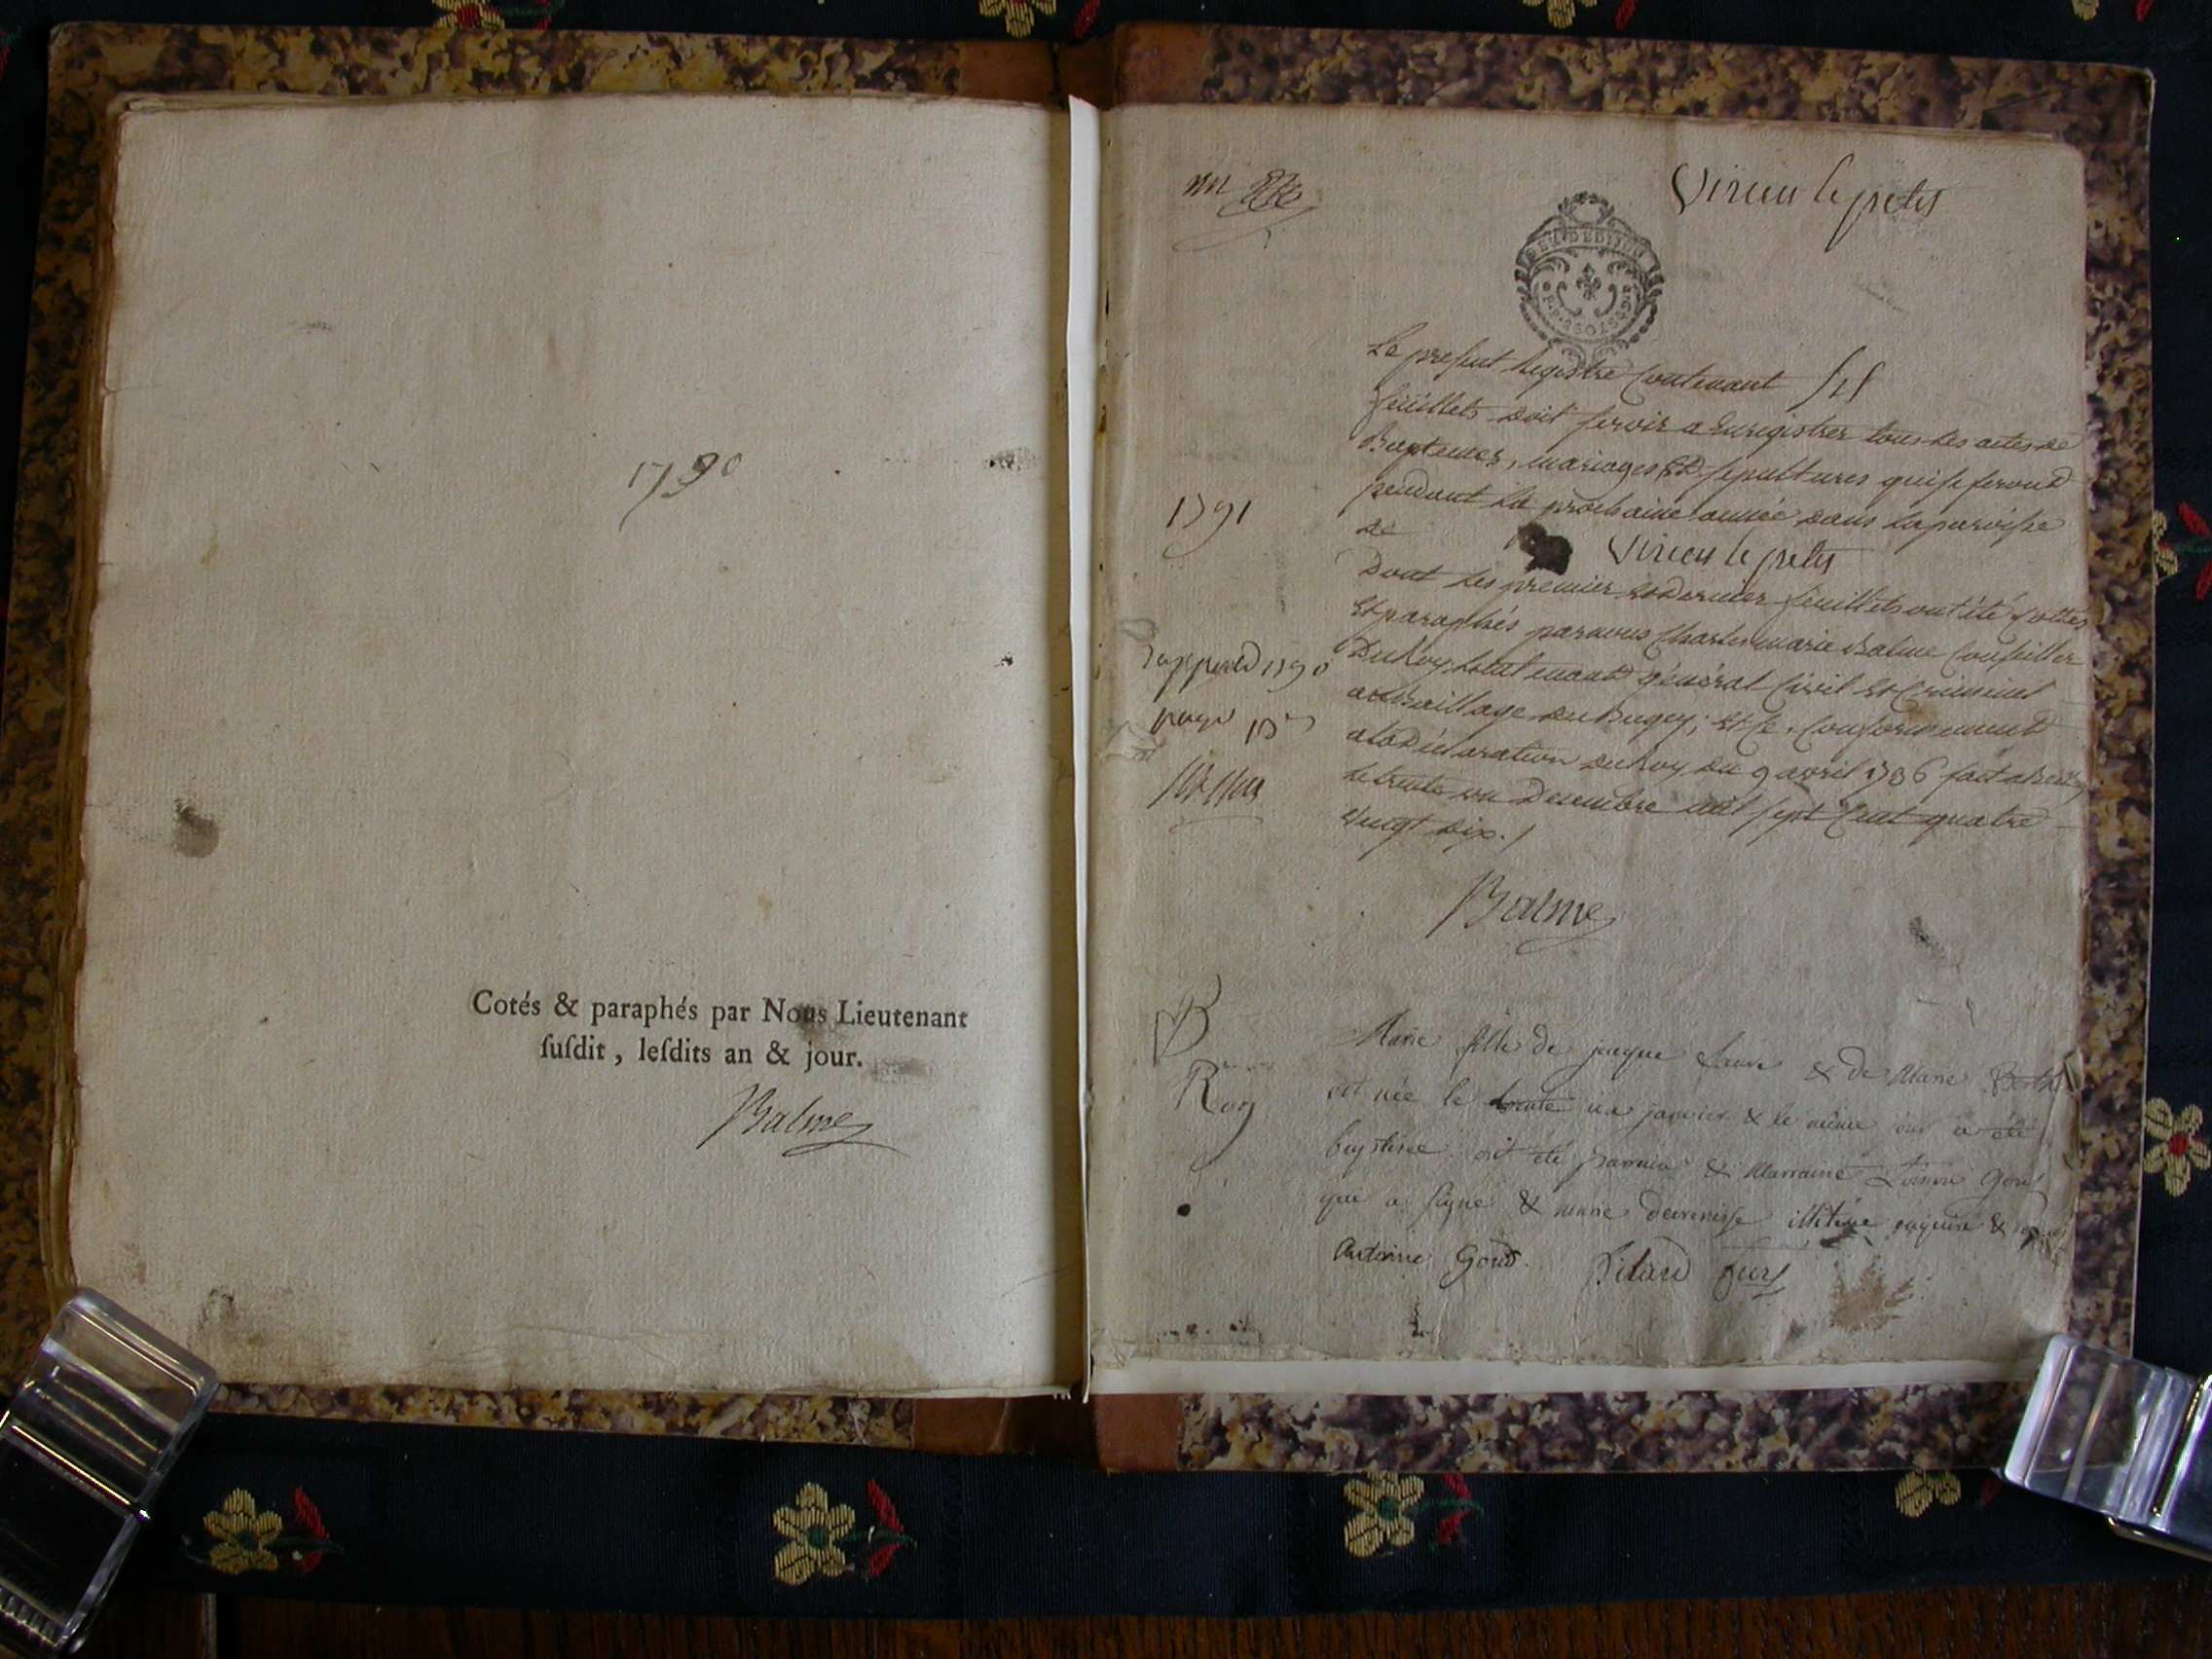 1790
Cotés & paraphés par Nous Lieutenant
ſuſdit, leſdits an & jour.
Balme
Virieu le petit
GEN. D E DIJON
Le preſent Regiſtre Contenant
feüillets doit ſervir a Enregistrer tous les actes de
Baptemes, mariages Et ſepultures qui ſe feront
pendant la prochaine année dans la paroiſse
de Virieu le petit
Dont les premier et Dernier feuillets ont été Cottés
Et paraphés par nous Charles marie Balme Conſeiller
Du Roy, Lieutenant général Civil Et Criminel
au Bailliage du Bugey; Et Ce, Conformement
a la Déclaration du Roy du 9 avril 1736 fait a
le trente un Decembre mil ſept Cent quatre
vingt dix. /
1791
1790
Balme
B
Marie fille de jacque & de Marie
est née le trente un janvier & le même jour a été
baptisée. ont été parrain & Marraine
qui a signé & marie illiterée
Antoine Goud.